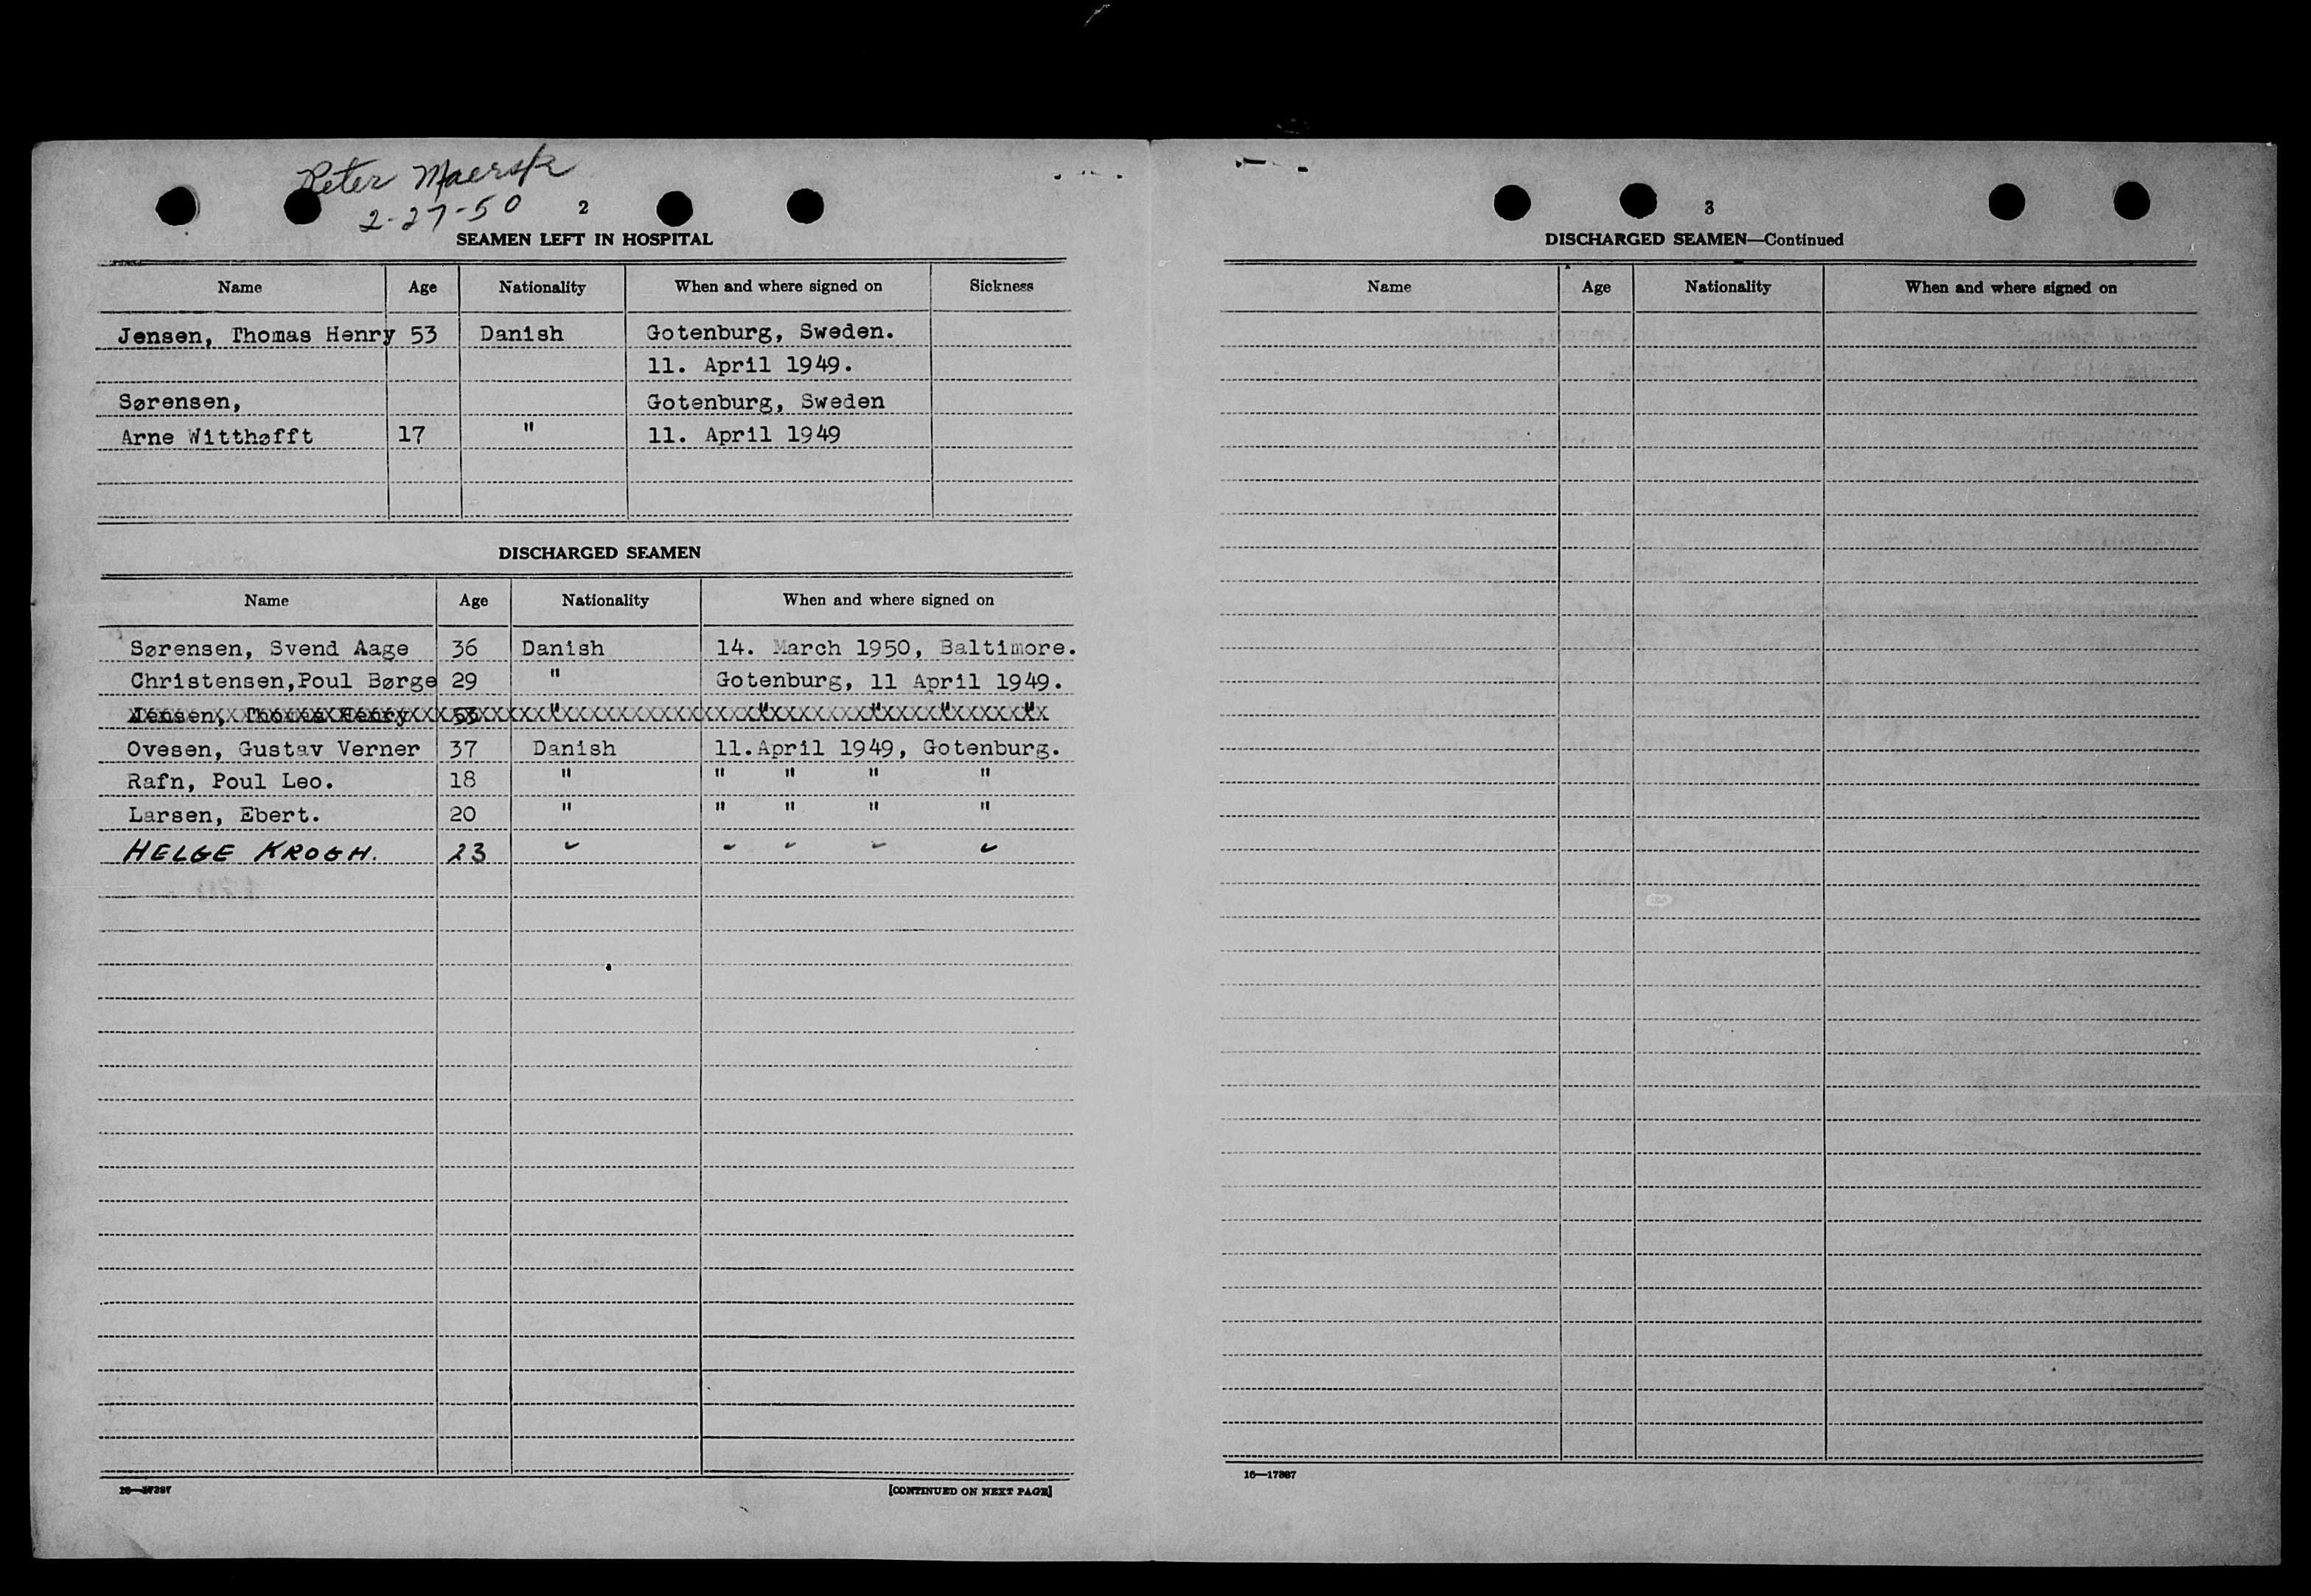 Peter Maersk
2-27-50
2
SEAMEN LEFT IN HOSPITAL
Name Age Nationality When and where signed on Sickness
Jensen, Thomas Henry 53 Danish Gotenburg, Sweden.
11. April 1949.
Sørensen, Gotenburg, Sweden
Arne Witthøfft 17 " 11. April 1949
DISCHARGED SEAMEN
Name Age Nationality When and where signed on
Sørensen, Svend Aage 36 Danish 14. March 1950, Baltimore.
Christensen,Poul Børge 29 " Gotenburg, 11 April 1949.
Jensen, Thomas Henry 53 " " " " "
Ovesen, Gustav Verner 37 Danish 11.April 1949, Gotenburg.
Rafn, Poul Leo. 18 " " " " "
Larsen, Ebert. 20 " " " " "
HELGE KROGH. 23 " " " " "
[CONTINUED ON NEXT PAGE]
3
DISCHARGED SEAMEN—Continued
Name Age Nationality When and where signed on
16—17387